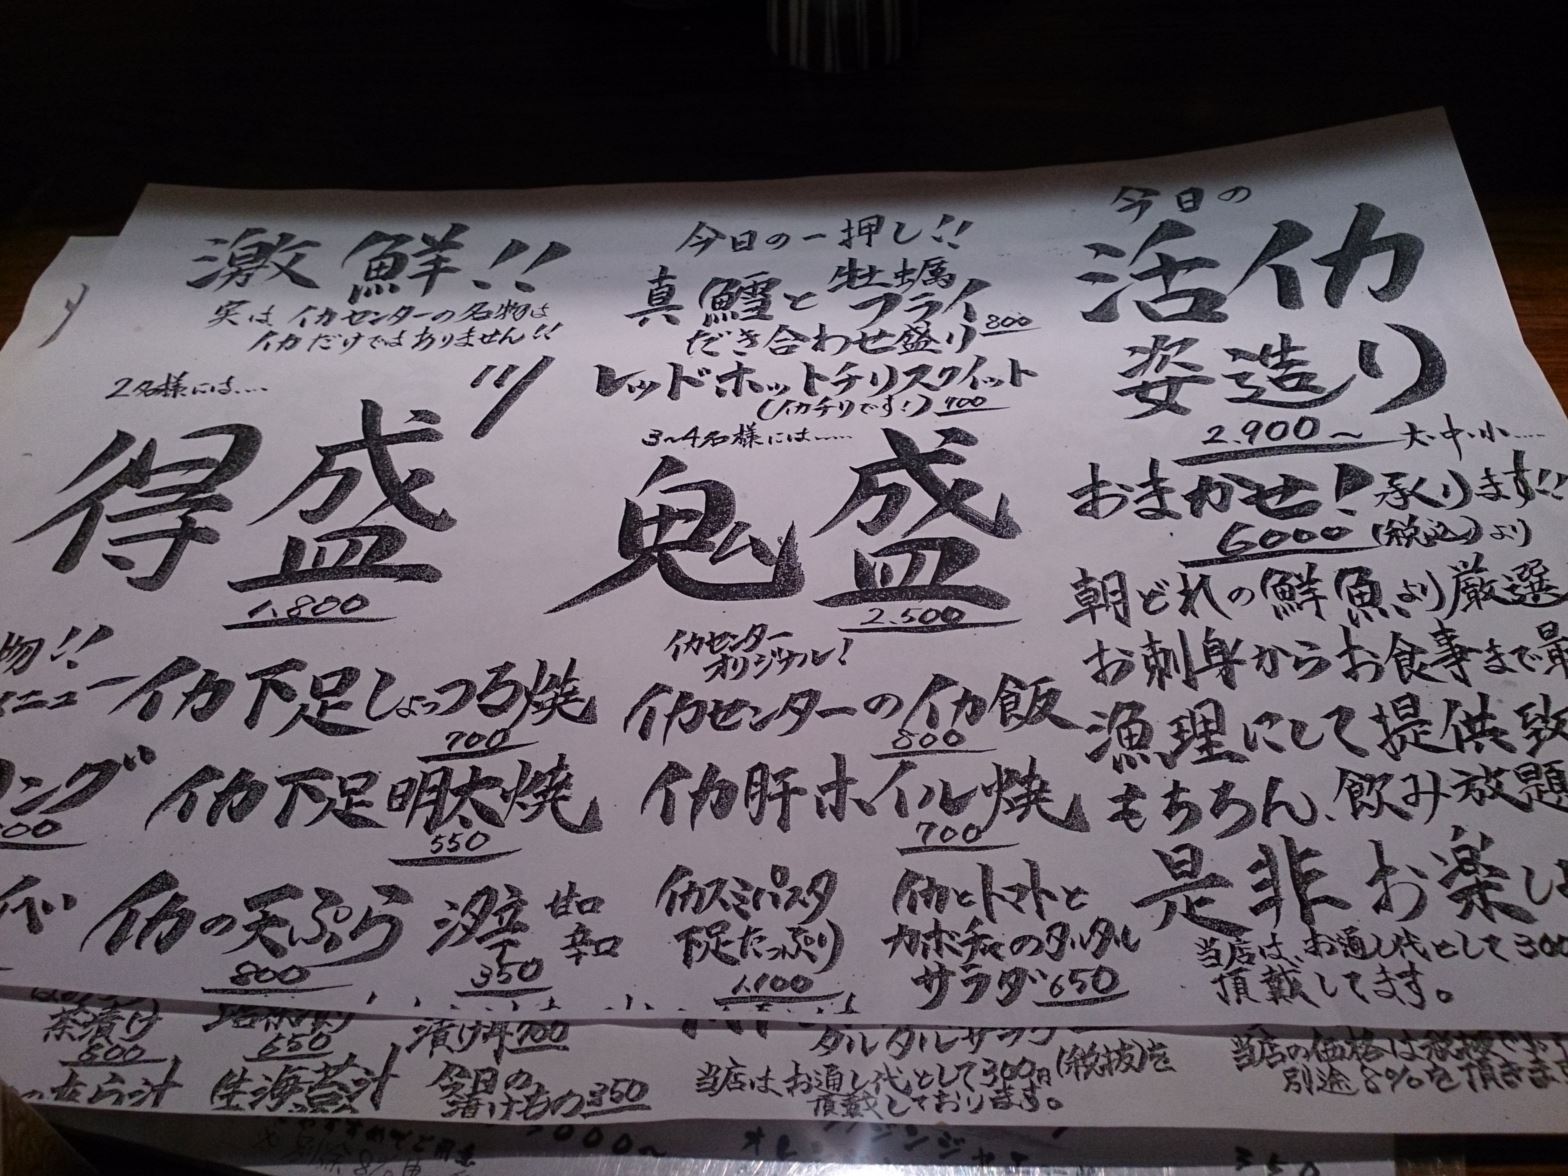 今日の
活イカ
姿造り
2,900〜 大中小….
おまかせ！承ります!!
6000(税込)より
朝どれの鮮魚より厳選
お刺身からお食事まで最
漁理にして提供致
もちろん、飲み放題
是非お楽し
当店は、お通し代として300
頂戴してます。
今日の一押し!!
真鱈と牡蠣フライ
だき合わせ盛り 800
レッドホットチリスクイット
(イカチリです！) 700
3〜4名様には……
鬼盛
2,500
イカセンター
オリジナル！
イカセンターのイカ飯
800
イカ肝ホイル焼
700
イカスミパスタ
下足たっぷり
1,100
イカとトマトと
カボチャのタルタル
サラダ 650
激鮮!!
実は イカセンターの名物は
イカだけではありません!!
2名様には…
得盛
1,800
イカ下足しょっつる焼
700
イカ下足明太焼
550
イカの天ぷら
800
沙立
350
甘口
辛口
物!!
メニュー
リング
イド
茶漬け
800
650
漬け丼 700
タルタルサラダ
生海苔汁
今日の
漬けもの 350
当店はお通し代として300円(税抜)を
頂戴しております。
別途8%を頂きま